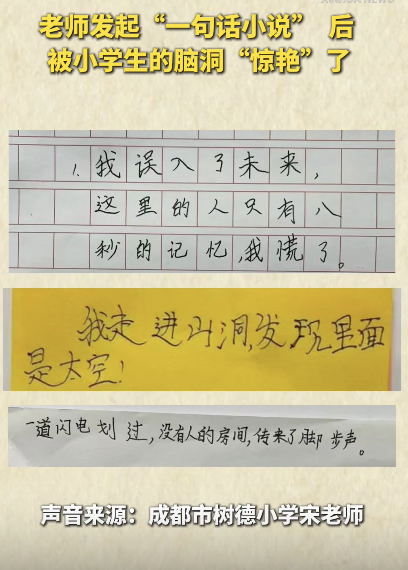 老师发起“一句话小说” 后
被小学生的脑洞“惊艳”了
1. 我误入了未来，
这里的人只有八
秒的记忆,我慌了。
我走进山洞,发现里面
是太空!
一道闪电划过,没有人的房间,传来了脚步声。
声音来源：成都市树德小学宋老师